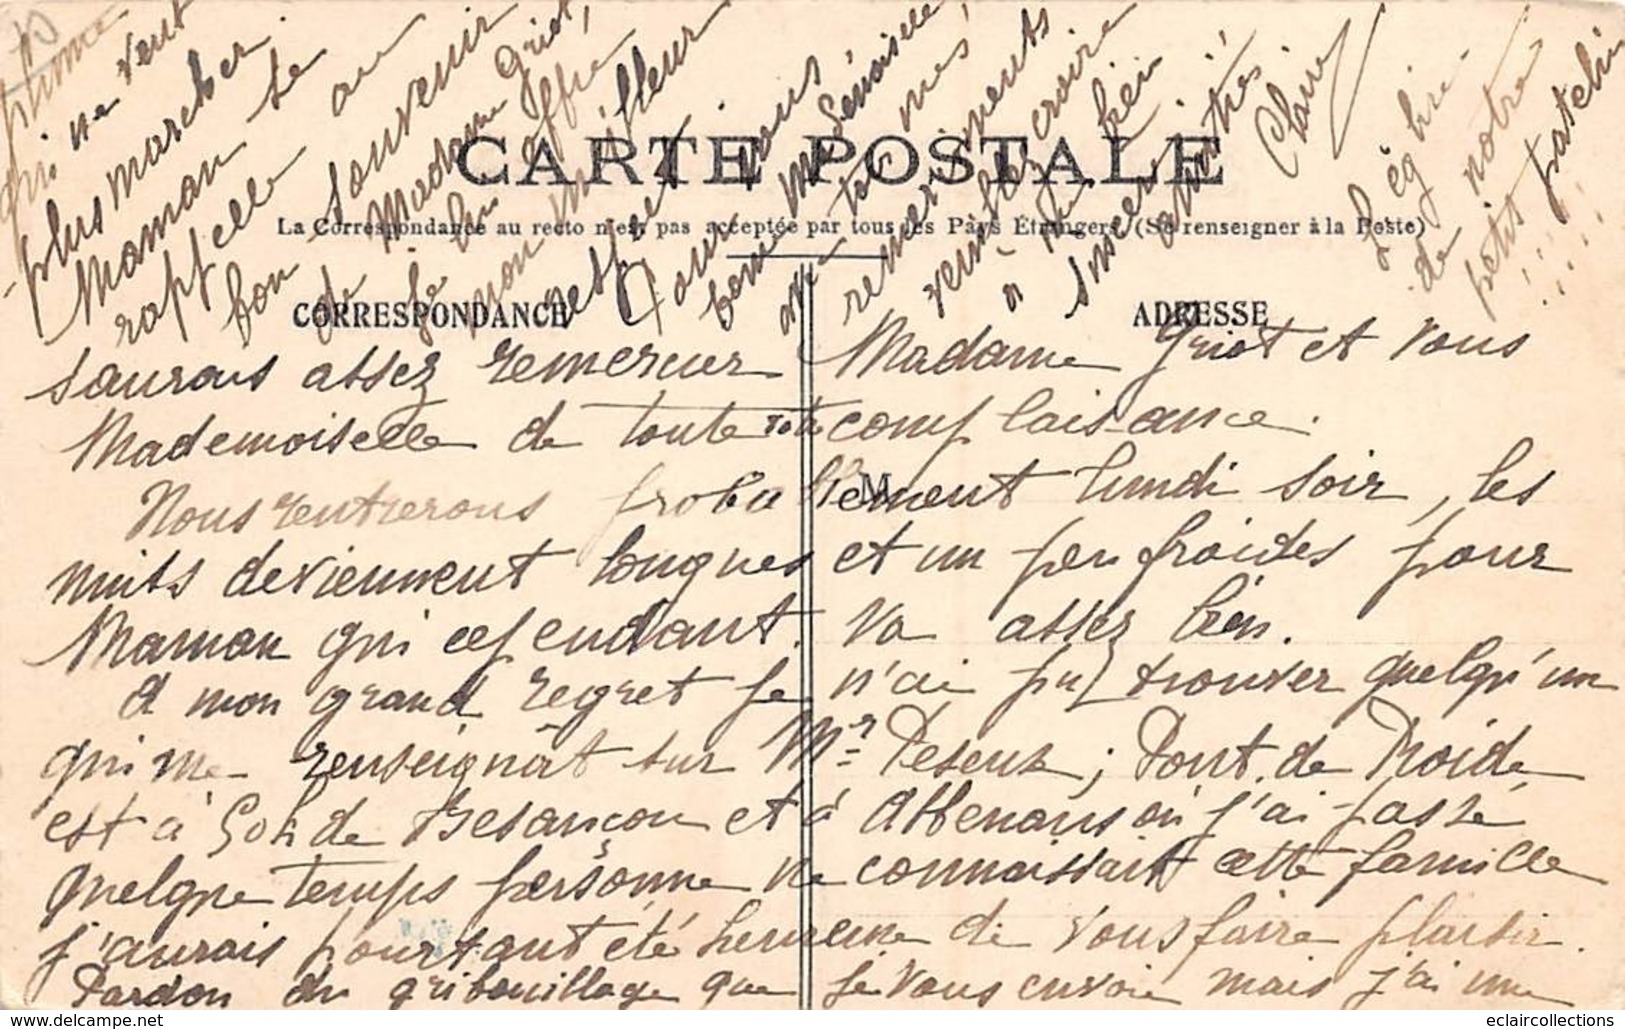 CARTE POSTALE
La Correspondance au recto n'est pas acceptée par tous les Pays Étrangers (Se renseigner à la Poste)
CORRESPONDANCE
ADRESSE
M
saurais assez remercier Madame Griot et vous
Mademoiselle de toute votre complaisance.
Nous rentrerons probablement lundi soir, les
nuits deviennent longues et un peu froides pour
Maman qui cependant va assez bien.
A mon grand regret je n'ai pu trouver quelqu'un
qui me renseignât sur Mr Peseux; Pont. de Roide
est à 90k de Besançon et à Abbenans où j'ai passé
quelque temps personne ne connaissait cette famille
j'aurais pourtant été heureuse de vous faire plaisir.
Pardon du gribouillage que je vous envoie mais j'ai une
plume
qui ne veut
plus marcher
Maman se
rappelle au
bon souvenir
de Madame Griot,
je lui offre
mon meilleur
respect.
Pour vous
bonne Mademoiselle,
avec mes
remerciements
veuillez croire
à ma bien
sincère amitié
Claire
de notre
petit patelin
!!!!!!
eclaircollections